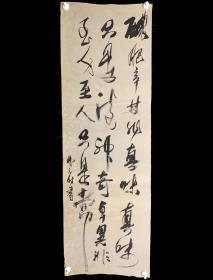 醲肥辛甘非真味真味
只是淡神奇卓異非
至人至人只是常
書